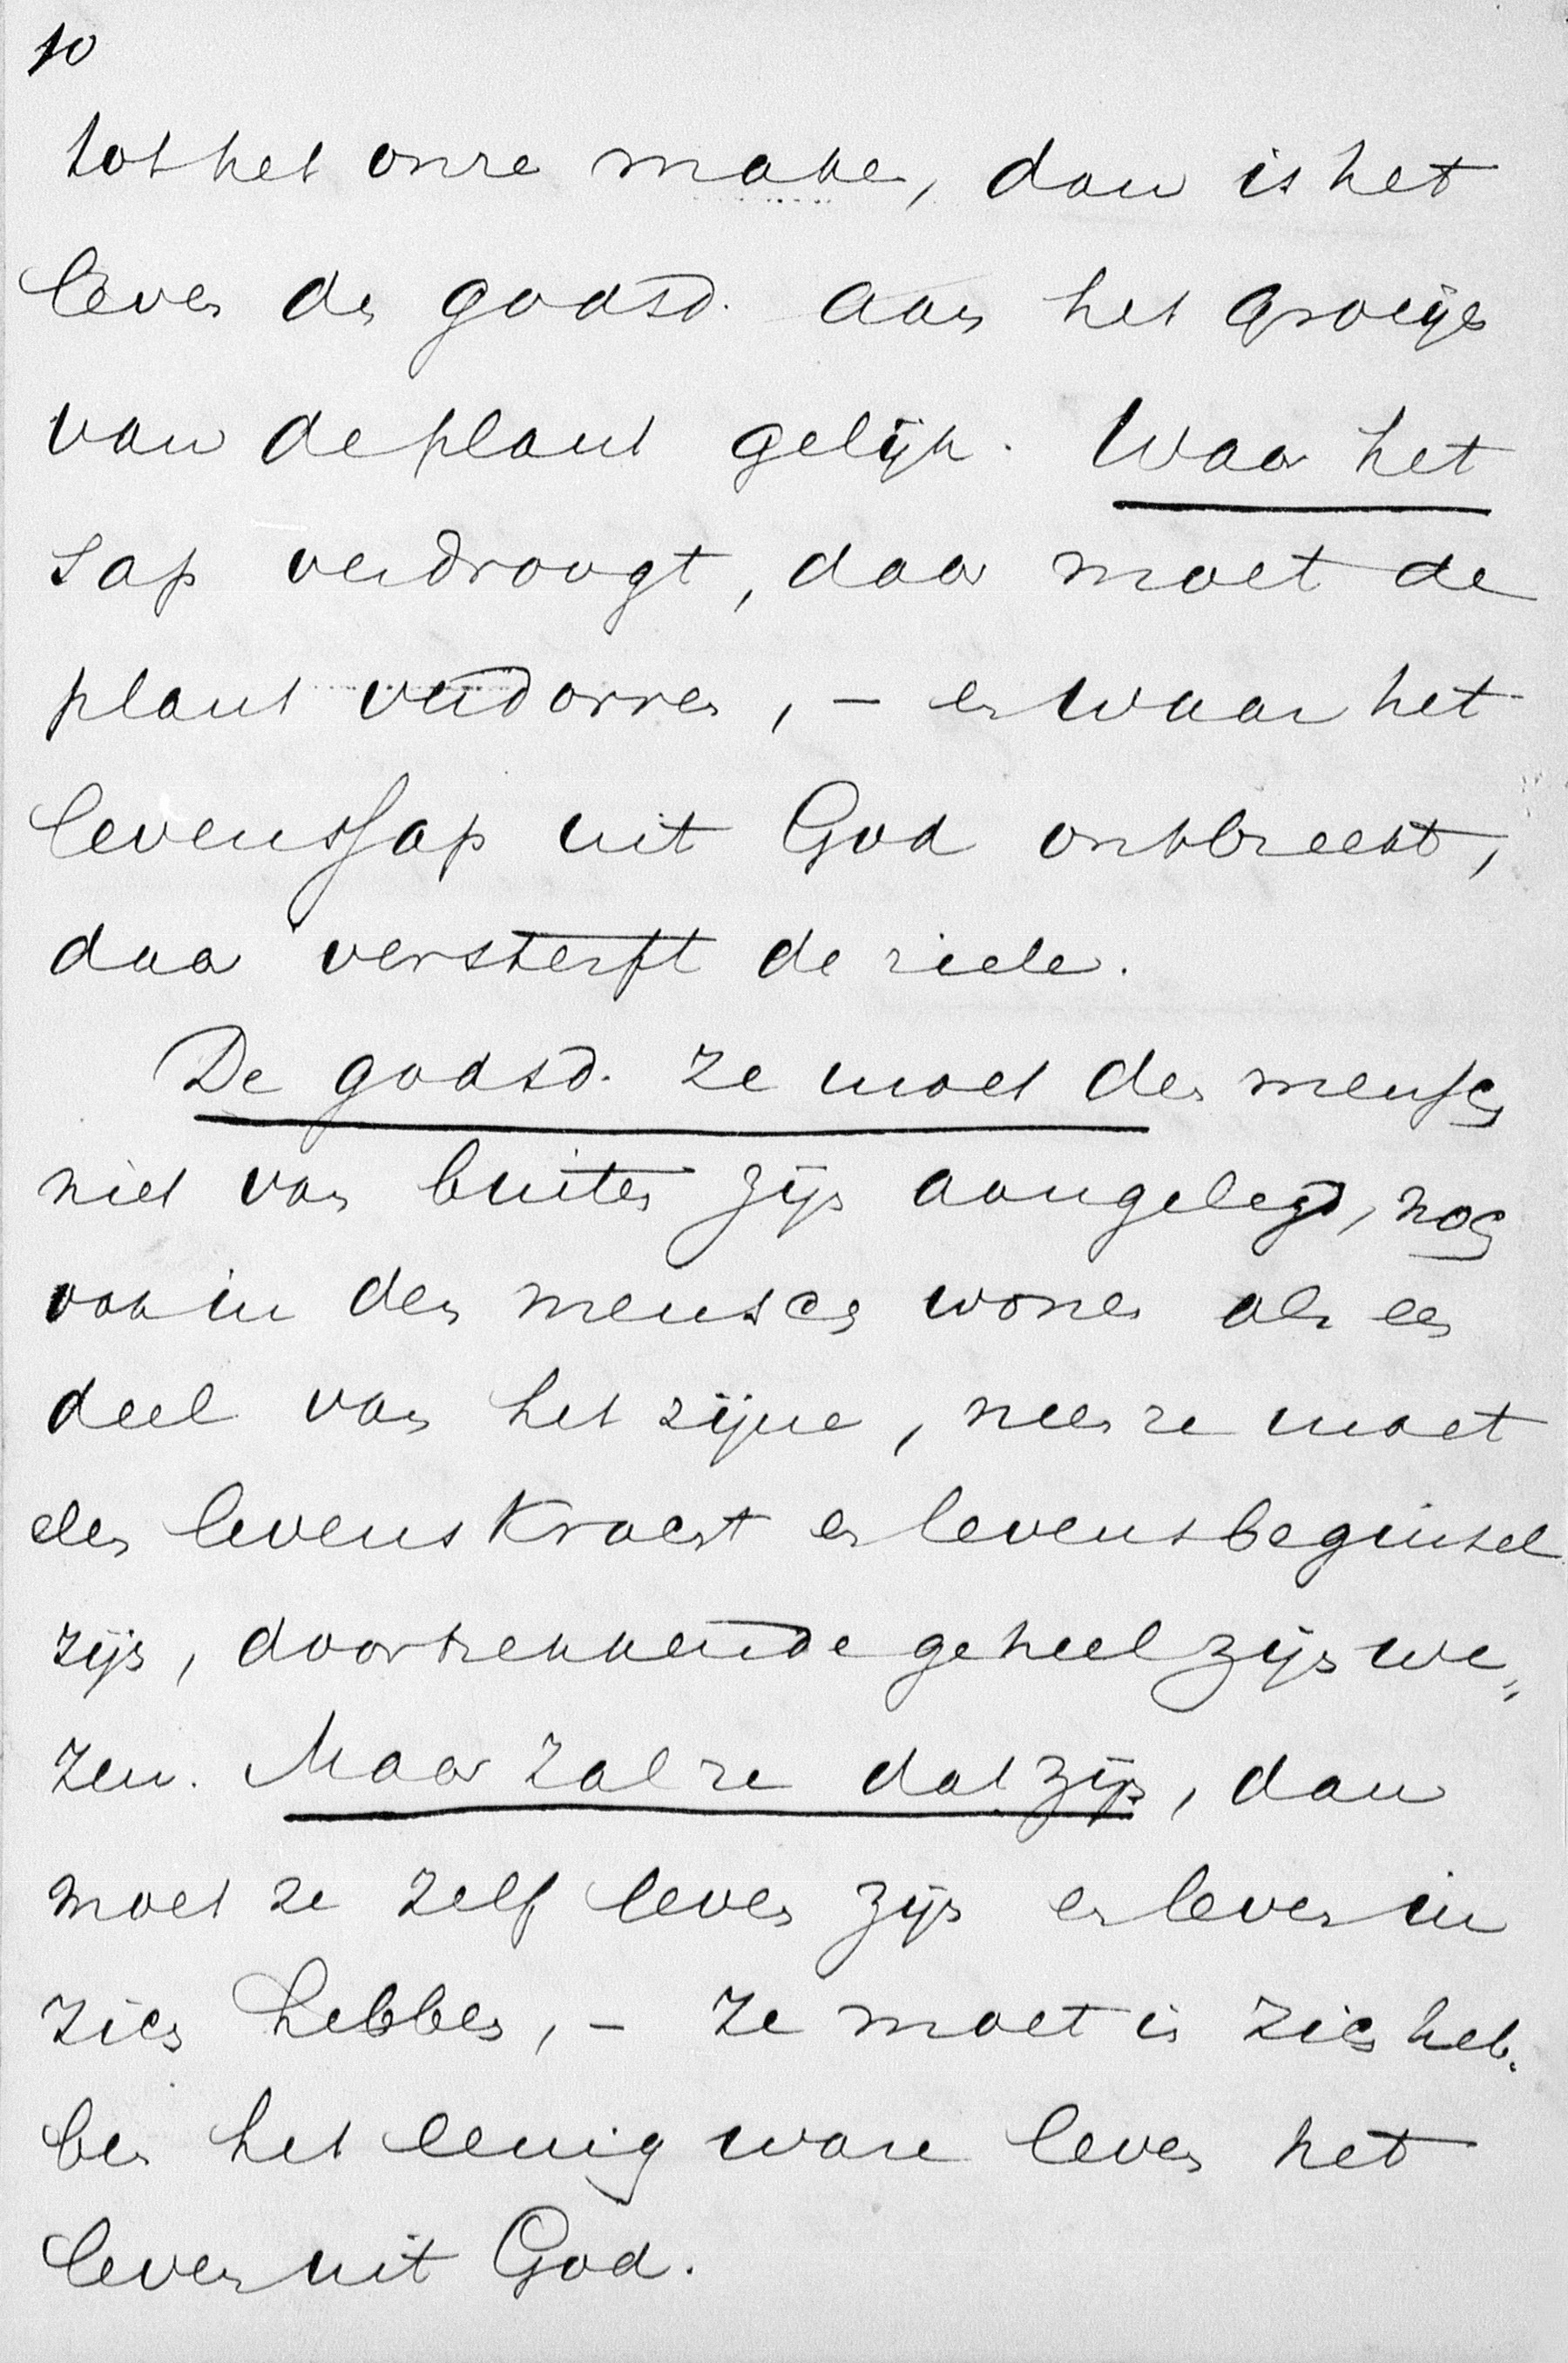 10
tot het onze maken, dan is het
leven der godsd. aan het groeijen
van de plant gelijk. Waar het
sap verdroogt, daar moet de
plant verdorren, – en waar het
levenssap uit God ontbreekt,
daar versterft de ziele.
De godsd. ze moet den mensch
niet van buiten zijn aangelegd, noch
ook in den mensch wonen als een
deel van het zijne, neen ze moet
des levens kracht en levensbeginsel
zijn, doortrekkende geheel zijn we„
zen. Maar zal ze dat zijn, dan
moet ze zelf leven zijn en leven in
zich hebben, – ze moet in zich heb.
ben het eenig ware leven het
leven uit God.